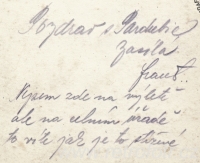 Pozdrav z Pardubic
zasílá
Frant.
Nejsem zde na výletě
ale na celním úřadě
to víte jak je to